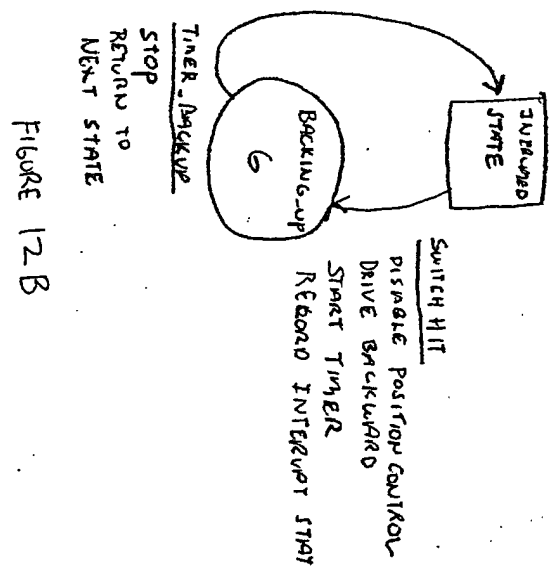 INTERUPTED
STATE
SWITCH HIT
DISABLE POSITION CONTROL
DRIVE BACKWARD
START TIMER
RECORD INTERUPT STAT
BACKING_UP
6
TIMER_BACKUP
STOP
RETURN TO
NEXT STATE
FIGURE 12B